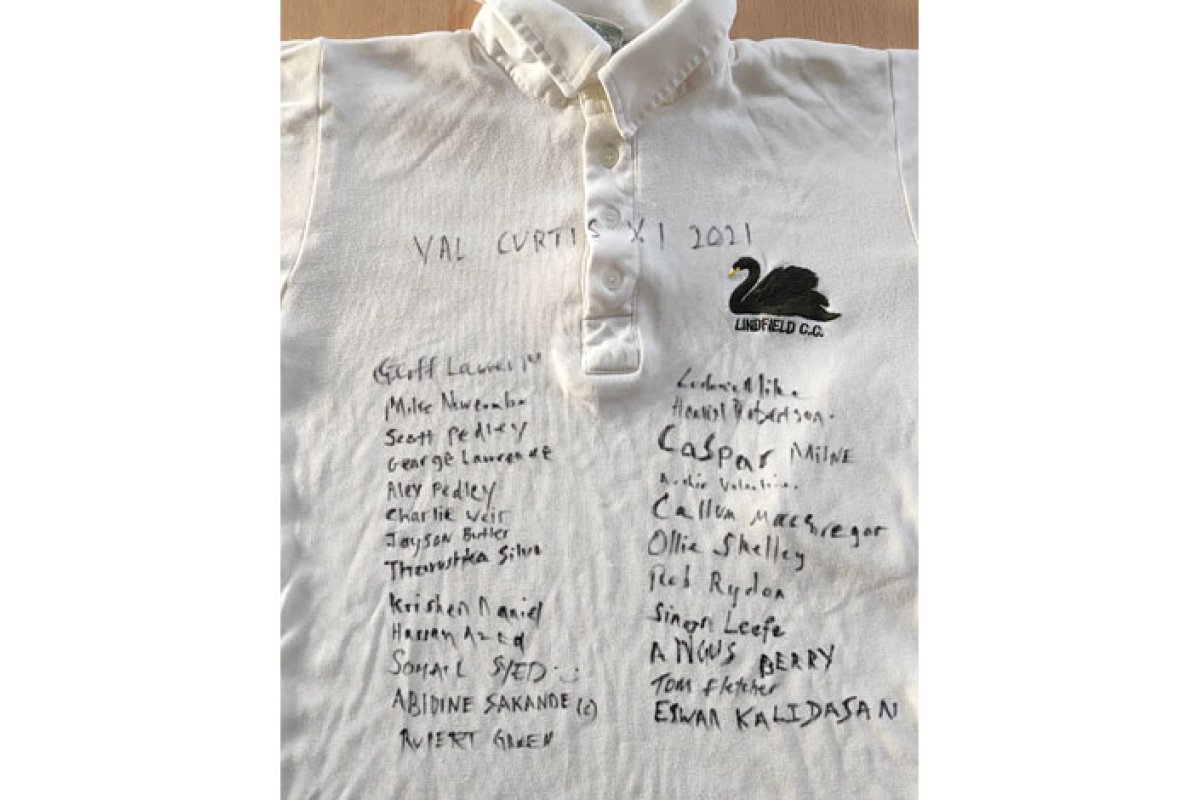 VAL CURTIS XI 2021
LINDFIELD C.C.
Geoff
Mike Newcombe
Scott Pedley
George Lawrence
Alex Pedley
Charlie Weir
Jayson Butler
Tharushka Silva
Krishen Daniel
Hassan Azad
SOHAIL SYED :-)
ABIDINE SAKANDE (C)
RUPERT GREEN
Robertson.
Caspar MILNE
Archie Valentine.
Callum MacGregor
Ollie Shelley
Rob Rydon
Simon Leefe
ANGUS BERRY
Tom Fletcher
ESWAR KALIDASAN